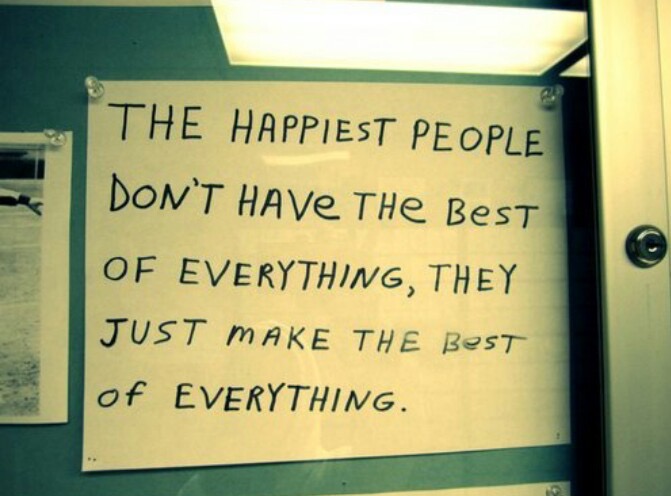 THE HAPPIEST PEOPLE
DON'T HAVe THe BesT
OF EVERYTHING, THEY
JUST mAKE THE BesT
of EVERYTHING.